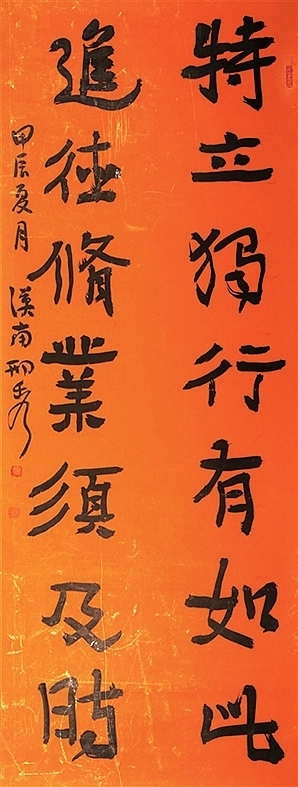 特立獨行有如此
進德脩業須及時
甲辰夏月 漢南邢秀